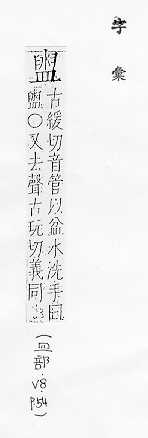 字彙
盥
古緩切音管以盆水洗手曰
盥○又去聲古玩切義同
(皿部.V8
P54)